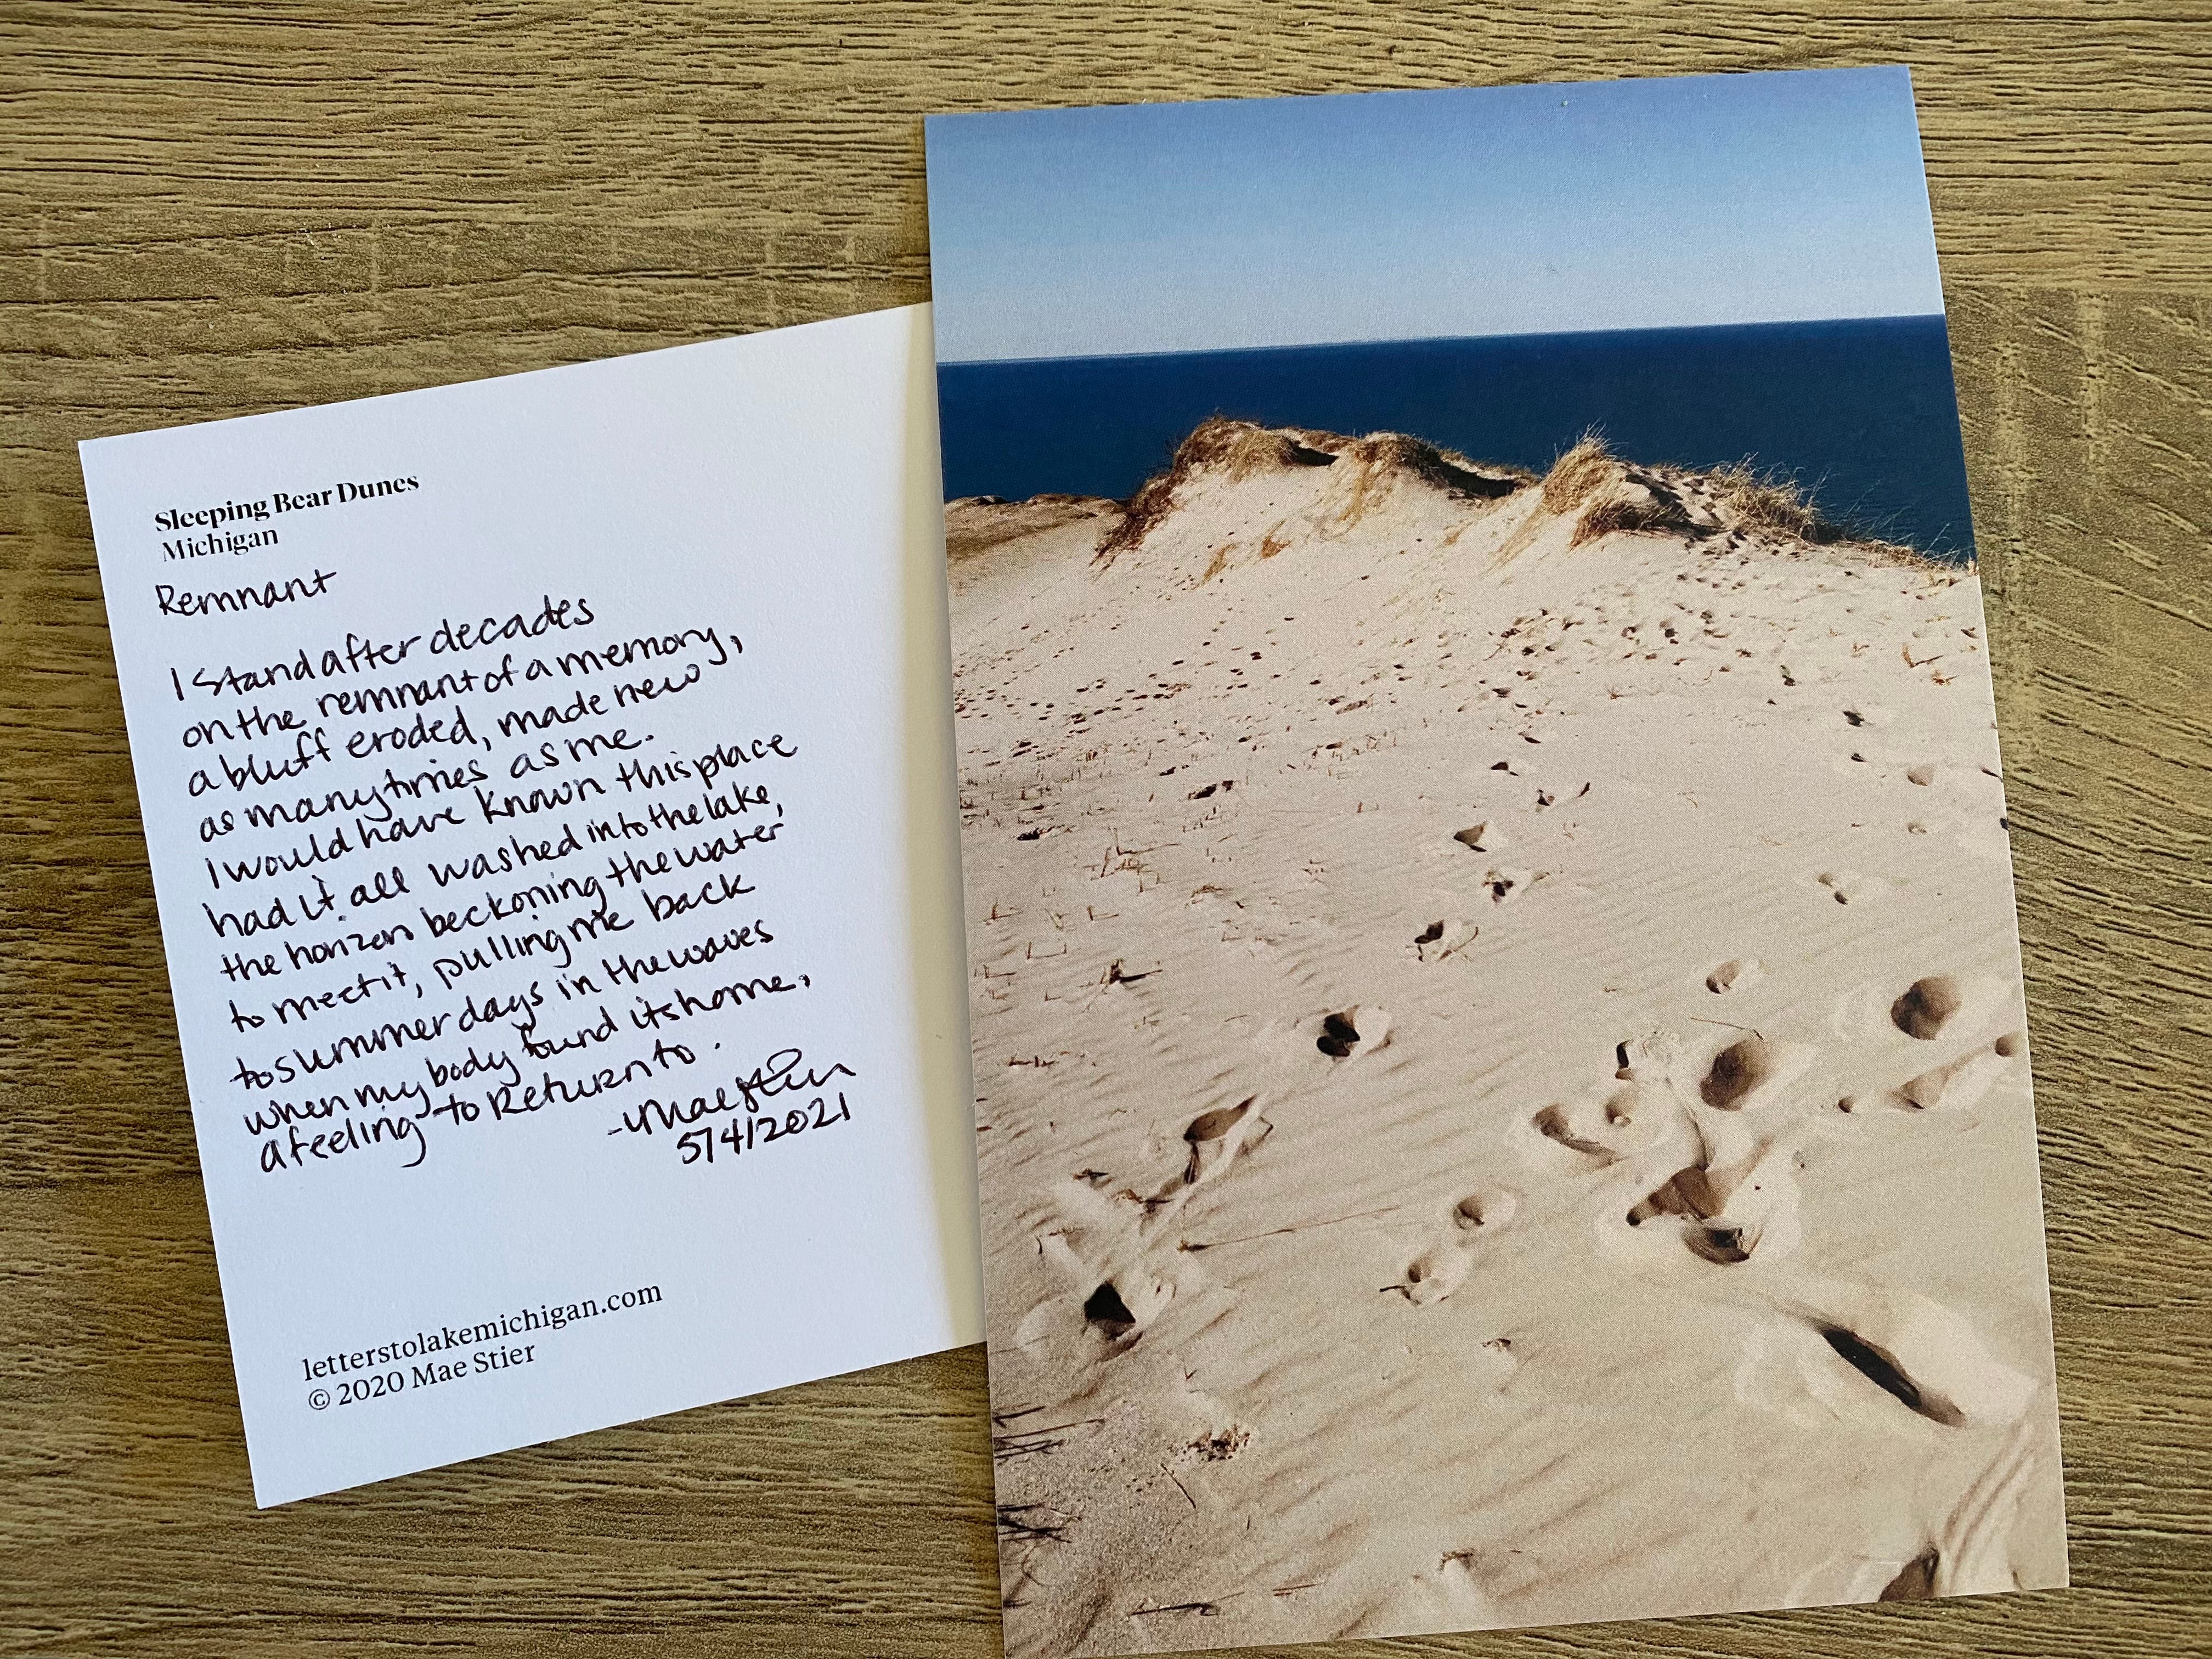 Sleeping Bear Dunes
Michigan
Remnant
I stand after decades
on the remnant of a memory,
a bluff eroded, made new
as many times as me.
I would have known this place
had it all washed into the lake,
the horizon beckoning the water
to meet it, pulling me back
to summer days in the waves
when my body found its home,
a feeling to return to.
-Mae Stier
5/4/2021
letterstolakemichigan.com
© 2020 Mae Stier